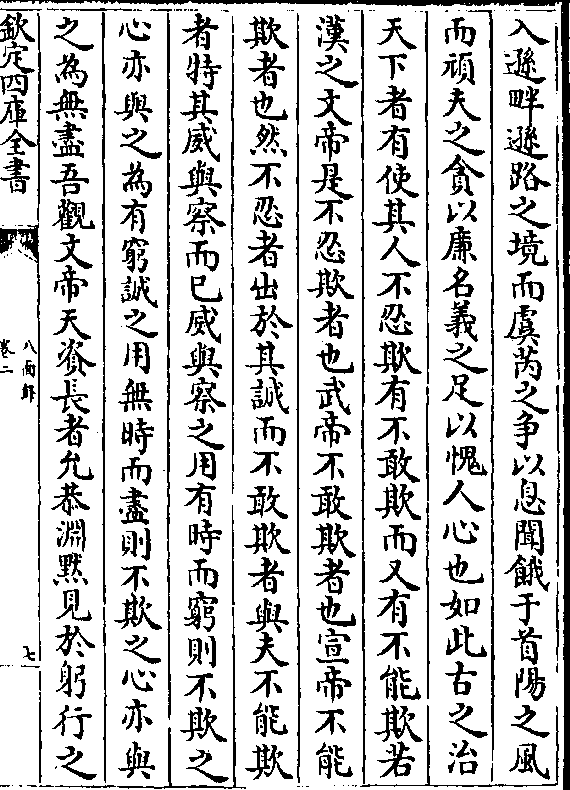 入遜畔遜路之境而虞芮之争以息聞餓于首陽之風
而頑夫之貪以廉名義之足以愧人心也如此古之治
天下者有使其人不忍欺有不敢欺而又有不能欺若
漢之文帝是不忍欺者也武帝不敢欺者也宣帝不能
欺者也然不忍者出於其誠而不敢欺者與夫不能欺
者特其威與察而已威與察之用有時而窮則不欺之
心亦與之為有窮誠之用無時而盡則不欺之心亦與
之為無盡吾觀文帝天資長者允恭淵黙見於躬行之
欽定四庫全書
八面鋒
卷二
七